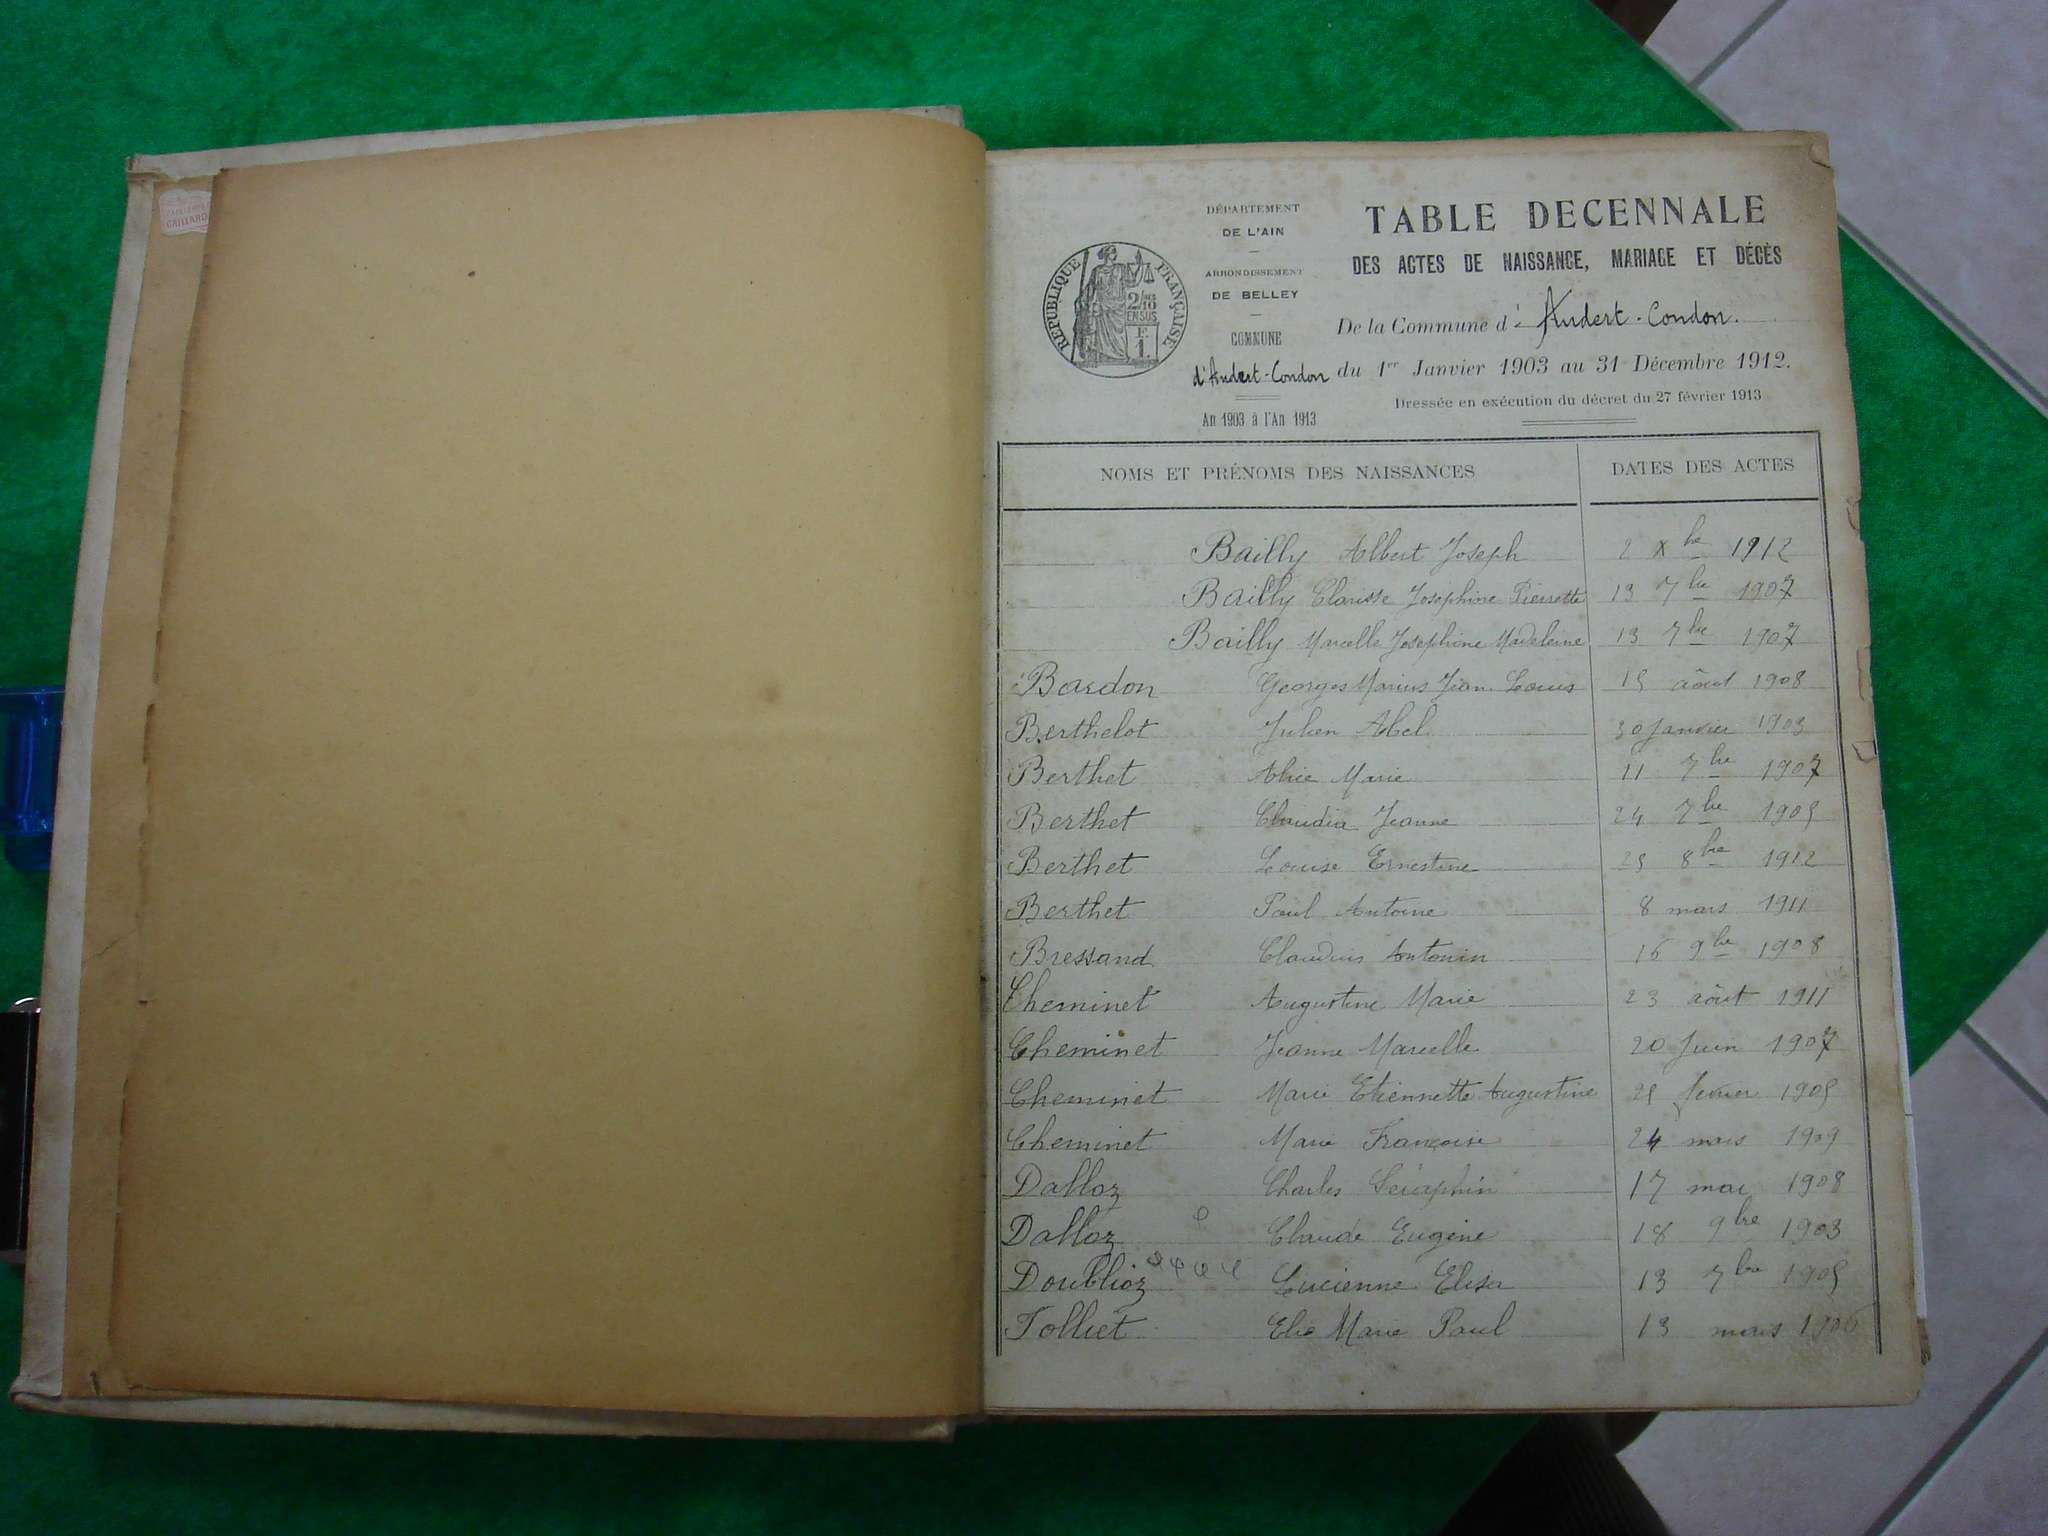 GAILLARD
RÉPUBLIQUE FRANÇAISE
2/10
EN SUS
F.
1.
DÉPARTEMENT
DE L'AIN
ARRONDISSEMENT
DE BELLEY
COMMUNE
d'Andert-Condon
An 1903 à l'An 1913
TABLE DECENNALE
DES ACTES DE NAISSANCE, MARIAGE ET DÉCÈS
De la Commune d' Andert-Condon.
du 1er Janvier 1903 au 31 Décembre 1912.
Dressée en exécution du décret du 27 février 1913
NOMS ET PRÉNOMS DES NAISSANCES DATES DES ACTES
Bailly Albert Joseph 2 Xbre 1912
Bailly Clarisse Josephine Pierrette 13 7bre 1907
Bailly Marcelle Josephine Madeleine 13 7bre 1907
Bardon Georges Marius Jean Louis 15 aôut 1908
Berthelot Julien Abel 30 Janvier 1903
Berthet Alice Marie 11 7bre 1907
Berthet Claudia Jeanne 24 7bre 1905
Berthet Louise Ernestine 25 8bre 1912
Berthet Paul Antoine 8 mars 1911
Bressand Claudius Antonin 16 9bre 1908
Cheminet Augustine Marie 23 aôut 1911
Cheminet Jeanne Marcelle 20 Juin 1907
Cheminet Marie Etiennette Augustine 25 fevrier 1905
Cheminet Marie Françoise 24 mars 1909
Dalloz Charles Séraphin 17 mai 1908
Dalloz Claude Eugène 18 9bre 1903
Doublioz Lucienne Elisa 13 7bre 1905
Tolliet Elie Marie Paul 13 mars 1906